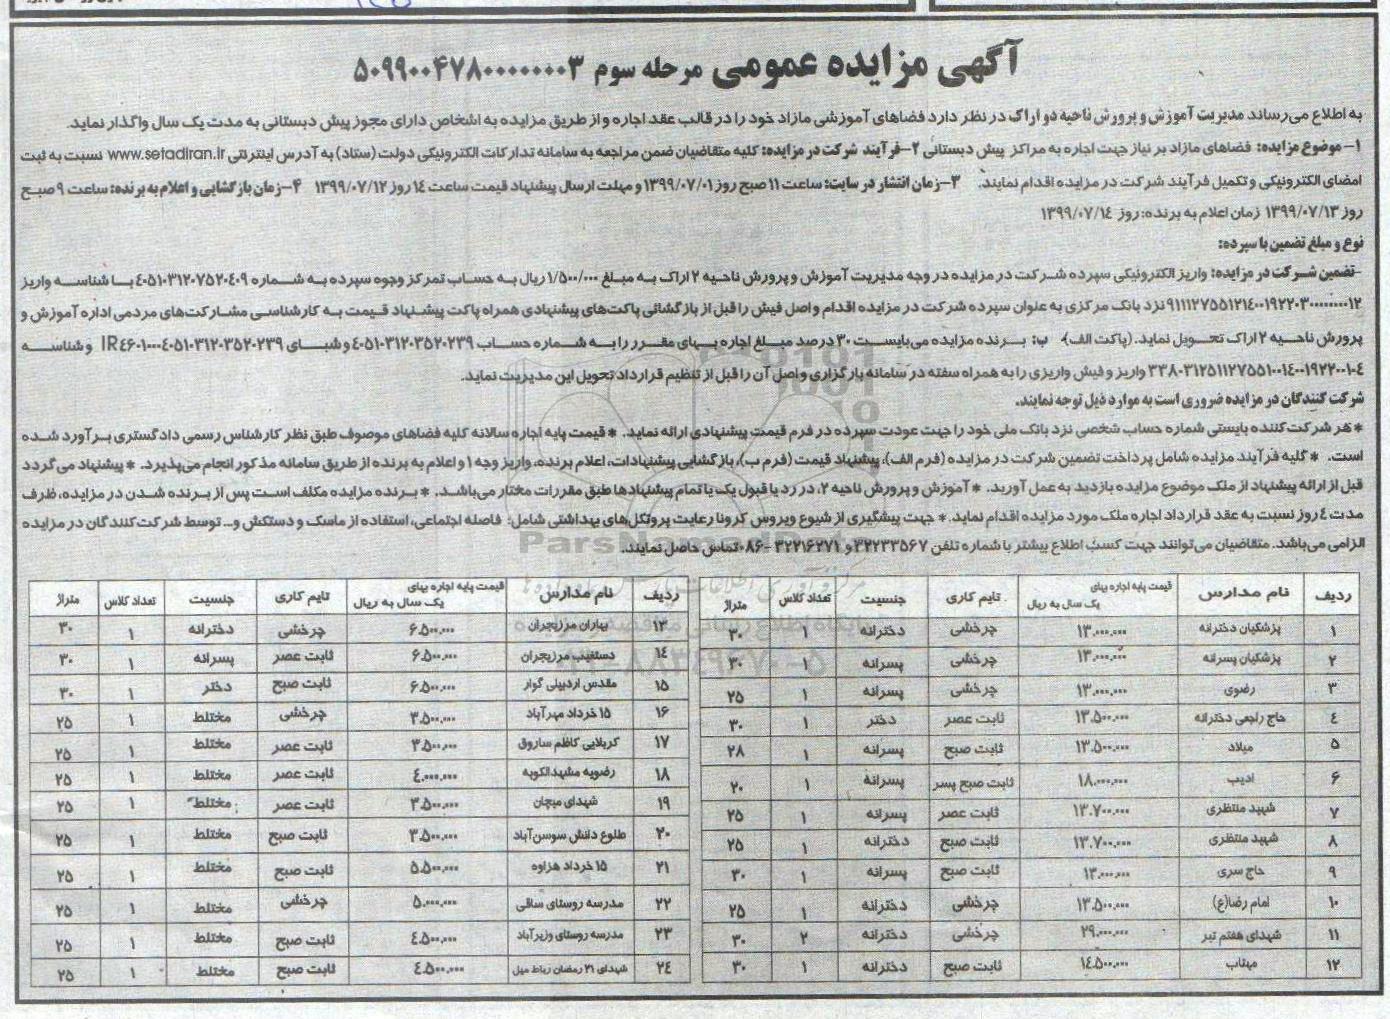 آگهی مزایده عمومی مرحله سوم ۵۰۹۹۰۰۴۷۸۰۰۰۰۰۰۰۳
به اطلاع می‌رساند مدیریت آموزش و پرورش ناحیه دو اراک در نظر دارد فضاهای آموزشی مازاد خود را در قالب عقد اجاره و از طریق مزایده به اشخاص دارای مجوز پیش دبستانی به مدت یک سال واگذار نماید.
۱- موضوع مزایده: فضاهای مازاد بر نیاز جهت اجاره به مراکز پیش دبستانی ۲- فرآیند شرکت در مزایده: کلیه متقاضیان ضمن مراجعه به سامانه تدارکات الکترونیکی دولت (ستاد) به آدرس اینترنتی www.setadiran.ir نسبت به ثبت
امضای الکترونیکی و تکمیل فرآیند شرکت در مزایده اقدام نمایند. ۳- زمان انتشار در سایت: ساعت ۱۱ صبح روز ۱۳۹۹/۰۷/۰۱ و مهلت ارسال پیشنهاد قیمت ساعت ۱٤ روز ۱۳۹۹/۰۷/۱۲ ۴- زمان بازگشایی و اعلام به برنده: ساعت ۹ صبح
روز ۱۳۹۹/۰۷/۱۳ زمان اعلام به برنده: روز ۱۳۹۹/۰۷/۱٤
نوع و مبلغ تضمین یا سپرده:
-تضمین شرکت در مزایده: واریز الکترونیکی سپرده شرکت در مزایده در وجه مدیریت آموزش و پرورش ناحیه ۲ اراک به مبلغ ۱/۵۰۰/۰۰۰ ریال به حساب تمرکز وجوه سپرده به شماره ٤۰۵۱۰۳۱۲۰۷۵۲۰٤۰۹ با شناسه واریز
نزد بانک مرکزی به عنوان سپرده شرکت در مزایده اقدام و اصل فیش را قبل از بازگشائی پاکت‌های پیشنهادی همراه پاکت پیشنهاد قیمت به کارشناسی مشارکت‌های مردمی اداره آموزش و
پرورش ناحیه ۲ اراک تحویل نماید. (پاکت الف) ب: برنده مزایده می‌بایست ۳۰ درصد مبلغ اجاره بهای مقرر را به شماره حساب ٤۰۵۱۰۳۱۲۰۳۵۲۰۲۳۹ و شبای IR٤٦۰۱۰۰۰۰٤۰۵۱۰۳۱۲۰۳۵۲۰۲۳۹ و شناسه
واریز و فیش واریزی را به همراه سفته در سامانه بارگزاری و اصل آن را قبل از تنظیم قرارداد تحویل این مدیریت نماید.
شرکت کنندگان در مزایده ضروری است به موارد ذیل توجه نمایند.
*هر شرکت‌کننده بایستی شماره حساب شخصی نزد بانک ملی خود را جهت عودت سپرده در فرم قیمت پیشنهادی ارائه نماید. *قیمت پایه اجاره سالانه کلیه فضاهای موصوف طبق نظر کارشناس رسمی دادگستری برآورد شده
است. *کلیه فرآیند مزایده شامل پرداخت تضمین شرکت در مزایده (فرم الف)، پیشنهاد قیمت (فرم ب)، بازگشایی پیشنهادات، اعلام برنده، واریز وجه ۱ و اعلام به برنده از طریق سامانه مذکور انجام می‌پذیرد. *پیشنهاد می‌گردد
قبل از ارائه پیشنهاد از ملک موضوع مزایده بازدید به عمل آورید. *آموزش و پرورش ناحیه ۲، در رد یا قبول یک یا تمام پیشنهادها طبق مقررات مختار می‌باشد. *برنده مزایده مکلف است پس از برنده شدن در مزایده، ظرف
مدت ٤ روز نسبت به عقد قرارداد اجاره ملک مورد مزایده اقدام نماید.* جهت پیشگیری از شیوع ویروس کرونا رعایت پروتکل‌های بهداشتی شامل: فاصله اجتماعی، استفاده از ماسک و دستکش و... توسط شرکت‌کنندگان در مزایده
الزامی می‌باشد. متقاضیان می‌توانند جهت کسب اطلاع بیشتر با شماره تلفن ۳۲۲۳۳۵۶۷ و ۳۲۲۱۶۲۷۱-۰۸۶ تماس حاصل نمایند.
ParsNamadData
ردیف نام مدارس قیمت پایه اجاره بهای یک سال به ریال تایم کاری جنسیت تعداد کلاس متراژ
۱ پزشکیان دخترانه ۱۳.۰۰۰.۰۰۰ چرخشی دخترانه ۱ ۳۰
۲ پزشکیان پسرانه ۱۳.۰۰۰.۰۰۰ چرخشی پسرانه ۱ ۳۰
۳ رضوی ۱۳.۰۰۰.۰۰۰ چرخشی پسرانه ۱ ۲۵
٤ حاج راجعی دخترانه ۱۳.۵۰۰.۰۰۰ ثابت عصر دختر ۱ ۳۰
۵ میلاد ۱۳.۵۰۰.۰۰۰ ثابت صبح پسرانه ۱ ۲۸
۶ ادیب ۱۸.۰۰۰.۰۰۰ ثابت صبح پسر پسرانه ۱ ۲۰
۷ شهید منتظری ۱۳.۷۰۰.۰۰۰ ثابت عصر پسرانه ۱ ۲۵
۸ شهید منتظری ۱۳.۷۰۰.۰۰۰ ثابت صبح دخترانه ۱ ۲۵
۹ حاج سری ۱۳.۰۰۰.۰۰۰ ثابت صبح پسرانه ۱ ۳۰
۱۰ امام رضا(ع) ۱۳.۵۰۰.۰۰۰ چرخشی دخترانه ۱ ۲۵
۱۱ شهدای هفتم تیر ۲۹.۰۰۰.۰۰۰ چرخشی دخترانه ۲ ۳۰
۱۲ مهتاب ۱٤.۵۰۰.۰۰۰ ثابت صبح دخترانه ۱ ۳۰
ردیف نام مدارس قیمت پایه اجاره بهای یک سال به ریال تایم کاری جنسیت تعداد کلاس متراژ
۱۳ بهاران مرزیجران ۶.۵۰۰.۰۰۰ چرخشی دخترانه ۱ ۳۰
۱٤ دستغیب مرزیجران ۶.۵۰۰.۰۰۰ ثابت عصر پسرانه ۱ ۳۰
۱۵ مقدس اردبیلی گوار ۶.۵۰۰.۰۰۰ ثابت صبح دختر ۱ ۳۰
۱۶ ۱۵ خرداد مهرآباد ۳.۵۰۰.۰۰۰ چرخشی مختلط ۱ ۲۵
۱۷ کربلایی کاظم ساروق ۳.۵۰۰.۰۰۰ ثابت عصر مختلط ۱ ۲۵
۱۸ رضویه مشهدالکوبه ٤.۰۰۰.۰۰۰ ثابت عصر مختلط ۱ ۲۵
۱۹ شهدای میچان ۳.۵۰۰.۰۰۰ ثابت عصر مختلط ۱ ۲۵
۲۰ طلوع دانش سوسن‌آباد ۳.۵۰۰.۰۰۰ ثابت صبح مختلط ۱ ۲۵
۲۱ ۱۵ خرداد هزاوه ۵.۵۰۰.۰۰۰ ثابت صبح مختلط ۱ ۲۵
۲۲ مدرسه روستای ساقی ۵.۰۰۰.۰۰۰ چرخشی مختلط ۱ ۲۵
۲۳ مدرسه روستای وزیرآباد ٤.۵۰۰.۰۰۰ ثابت صبح مختلط ۱ ۲۵
۲٤ شهدای ۲۱ رمضان رباط میل ٤.۵۰۰.۰۰۰ ثابت صبح مختلط ۱ ۲۵